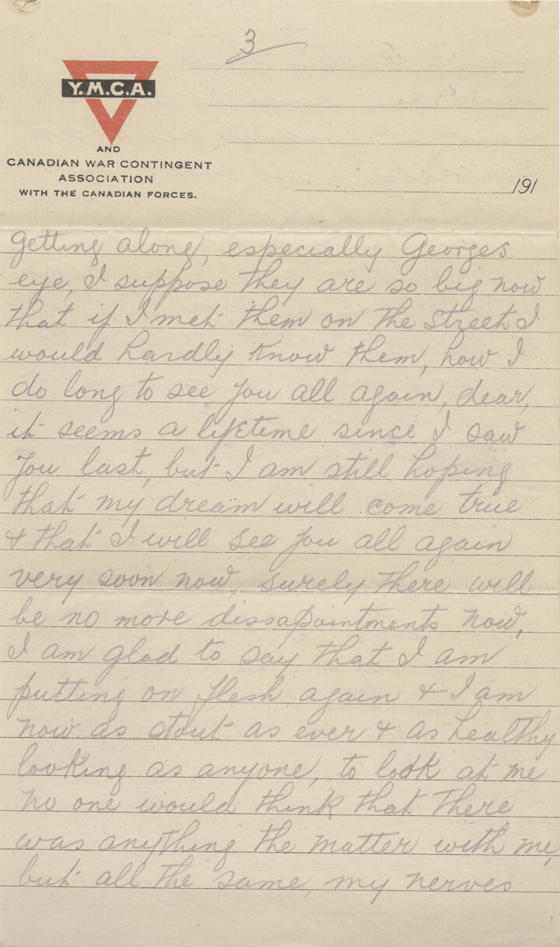 3
Y.M.C.A.
AND
CANADIAN WAR CONTINGENT
ASSOCIATION
WITH THE CANADIAN FORCES.
191
getting along, especially Georges
eye, I suppose they are so big now
that if I met them on the street I
would hardly know them, how I
do long to see you all again, dear,
it seems a lifetime since I saw
you last, but I am still hoping
that my dream will come true
& that I will see you all again
very soon now, surely there will
be no more dissapointments now,
I am glad to say that I am
putting on flesh again & I am
now as stout as ever & as healthy
looking as anyone, to look at me
no one would think that there
was anything the matter with me,
but all the same, my nerves